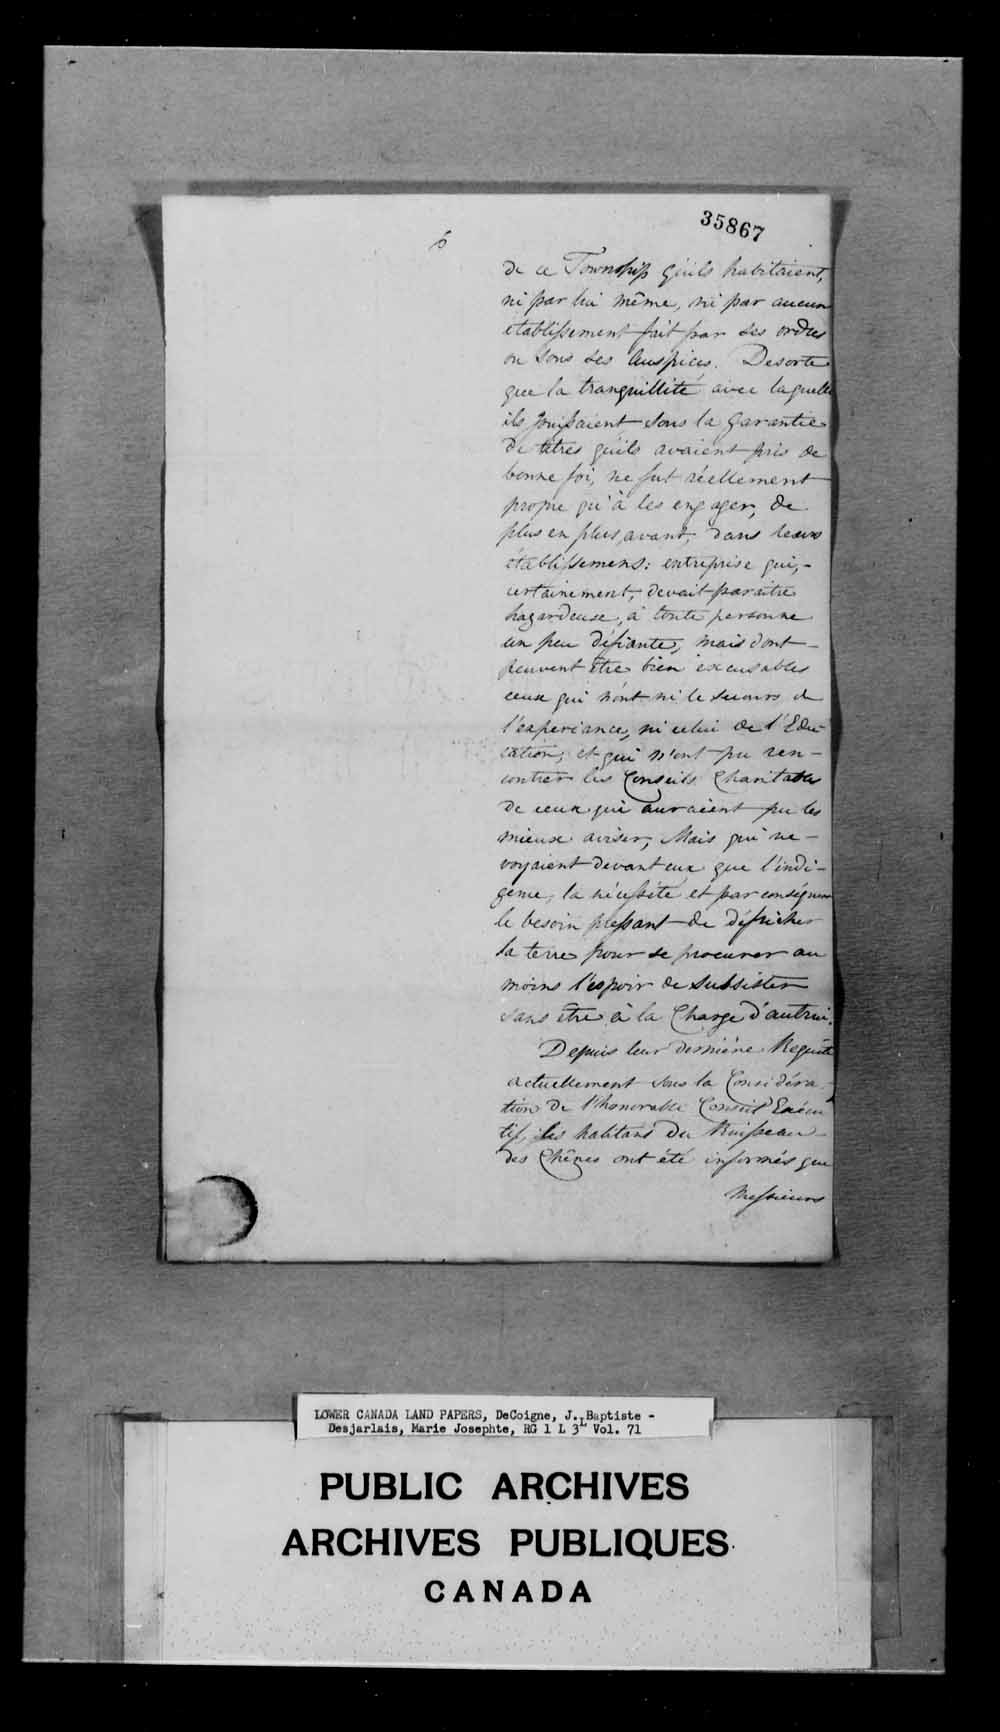 35867
6
de ce Township qu'ils habitaient,
ni par lui même, ni par aucun
etablissement fait par ses ordres
ou sous ses Auspices. Desorte
que la tranquillité avec laquelle
ils jouissaient sous la Garantie
de titres qu'ils avaient pris de
bonne foi, ne fut réellement
propre qu'à les engager, de
plus en plus, avant, dans leurs
établissemens: entreprise qui,-
certainement, devait paraitre
hazardeuse, à toute personne
un peu défiante, mais dont-
peuvent être bien excusables
ceux qui n'ont ni le secours de
l'experiance, ni celui de l'Edu-
cation, et qui n'ont pu ren-
contrer les Conseils Charitables
de ceux qui auraient pu les
mieux aviser, Mais qui ne-
voyaient devant eux que l'indi-
gence, la nécessité et par conséquent
le besoin pressant de défricher
la terre pour se procurer au
moins l'espoir de subsister
sans être à la Charge d'autrui.
Depuis leur dernière Requête
actuellement sous la Considéra-
tion de l'honorable Conseil Exécu
tif, les habitans du Ruisseau
des Chênes ont été informés que
Messieurs
LOWER CANADA LAND PAPERS, DeCoigne, J. Baptiste -
Desjarlais, Marie Josephte, RG 1 L 3L Vol. 71
PUBLIC ARCHIVES
ARCHIVES PUBLIQUES
CANADA